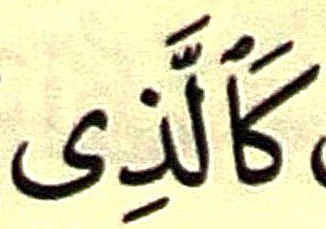 كَٱلَّذِى